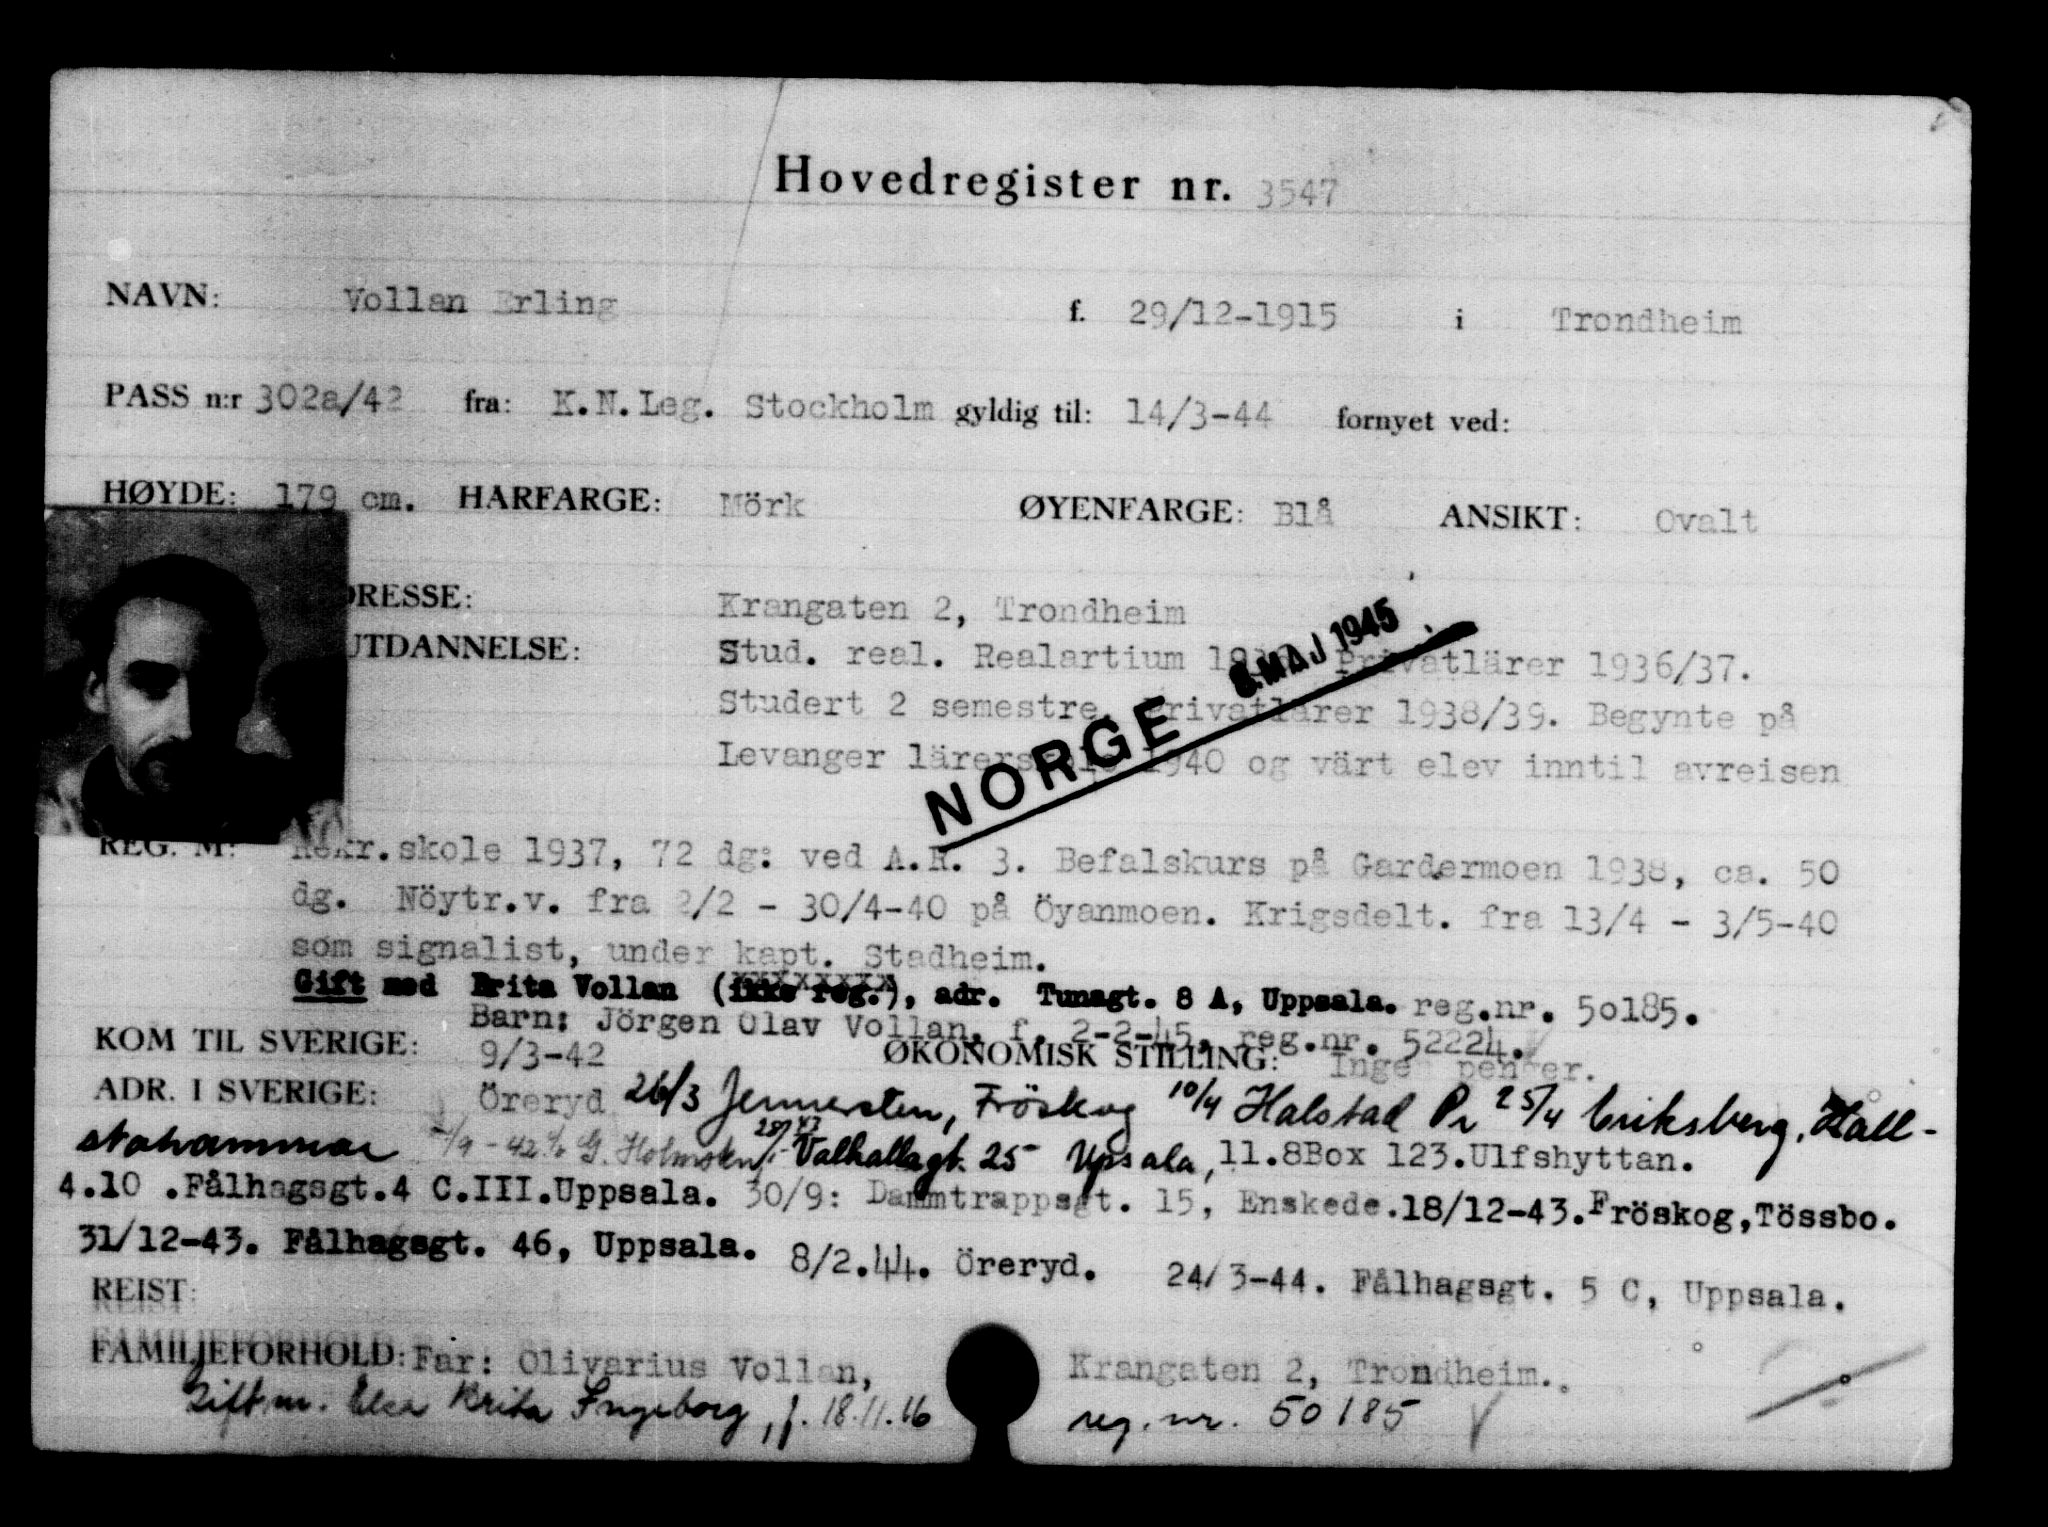 Hovedregister nr. 3547
NAVN: Vollan Erling f. 29/12-1915 i Trondheim
PASS n:r 302a/42 fra: K.N.Leg. Stockholm gyldig til: 14/3-44 fornyet ved:
HØYDE: 179 cm. HÅRFARGE: Mörk ØYENFARGE: Blå ANSIKT: Ovalt
DRESSE: Krangaten 2, Trondheim
UTDANNELSE: Stud. real. Realartium Privatlärer 1936/37.
Studert 2 semestre. Privatlärer 1938/39. Begynte på
Levanger lärerskole 1940 og värt elev inntil avreisen
NORGE 8.MAJ 1945
REG. M: Rekr.skole 1937, 72 dg: ved A.R. 3. Befalskurs på Gardermoen 1938, ca. 50
dg. Nöytr.v. fra 2/2 - 30/4-40 på Öyanmoen. Krigsdelt. fra 13/4 - 3/5-40
som signalist, under kapt. Stadheim.
Gift med Brita Vollan (ikke reg.), adr. Tunagt. 8 A, Uppsala. reg.nr. 50185.
Barn: Jörgen Olav Vollan, f. 2-2-45, reg.nr. 52224.
KOM TIL SVERIGE: 9/3-42 ØKONOMISK STILLING: Ingen penger.
ADR. I SVERIGE: Öreryd 26/3 Jennersten, Fröskog 10/4 Halstad Pr 25/4 Eriksberg, Hall-
stahammar /9-42 c/o G. Holmsten Valhallagt. 25 Upsala, 11.8Box 123.Ulfshyttan.
4.10 .Fålhagsgt.4 C.III.Uppsala. 30/9: Dammtrappsgt. 15, Enskede.18/12-43.Fröskog,Tössbo.
31/12-43. Fålhagsgt. 46, Uppsala. 8/2.44. Öreryd. 24/3-44. Fålhagsgt. 5 C, Uppsala.
REIST:
FAMILJEFORHOLD: Far: Olivarius Vollan, Krangaten 2, Trondheim.
Gift m. Elsa Brita Ingeborg, f. 18.11.16 reg.nr. 50185